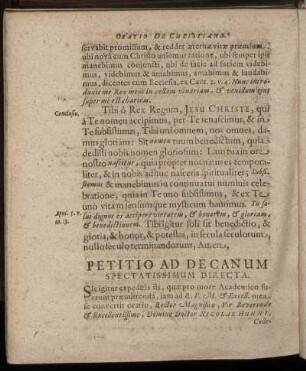 ORATIO DE CHRISTIANA
servabit promissum, & reddet æternæ vitæ præmium,
ubi nova cum Christo unientur ratione, ubi semper ipsi
manebimus conjuncti, ubi de facie ad faciem videmus,
videbimus & amabimus, amabimus & laudabimus,
dicentes cum Ecclesia, ex Cant. 2. v. 4. Nunc introduxit
me Rex meus in cellam vinariam, & vexillum ejus
super me est charitas.
Conclusio.
Tibi ô Rex Regum, JESU CHRISTE, qui
à Te nomen accipimus, per Te renascimur, & in
Te subsistimus, Tibi uni omnem, nos omnes, damus
gloriam: Sit nomen tuum benedictum, quia
dedisti nobis nomen gloriosum: Laus tua in ore
nostro nascitur, quia propter nos natus es temporaliter,
& in nobis adhuc nasceris spiritualiter; Subsistemus
& manebimus in continuatu numinis celebratione,
quia in Te uno subsistimus, & ex Te
uno vitam sensumque mysticum haurimus. Tu solus
Apoc. 5. v.
dignus es accipere virtutem, & honorem, & gloriam,
& benedictionem. Tibi igitur soli sit benedictio, &
gloria, & honor, & potestas, in secula seculorum,
nullo seculo terminandorum, Amen.
PETITIO AD DECANUM
SPECTATISSIMUM DIRECTA.
Sic igitur expeditis iis, quæ pro more Academico
erant præmittenda, jam ad R. V. M. & Excell. mea
se convertit oratio, Rector Magnifice, Vir Reverende
& Excellentissime, Domine Doctor NICOLAE HUNNI,
Cele-